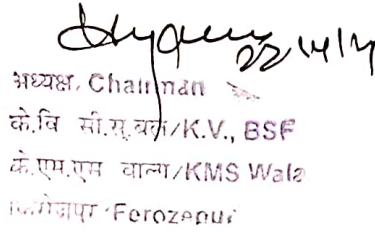 22/4/17
अध्यक्ष, Chairman
के.वि सी.सु.बल/K.V., BSF
के.एम.एस वाला/KMS Wala
फिरोजपुर Ferozepur